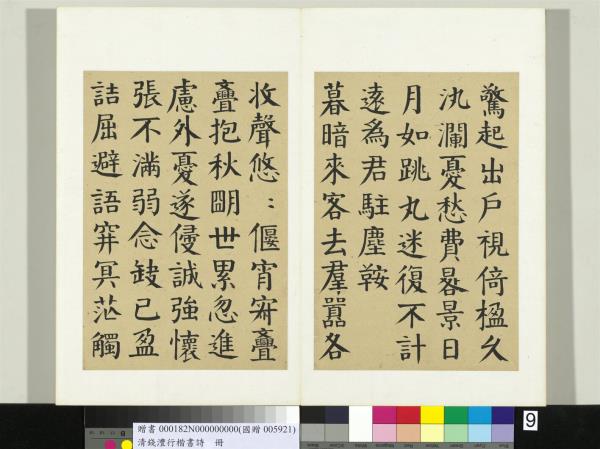 驚起出戶視倚楹久
汍瀾憂愁費晷景日
月如跳丸迷復不計
遠為君駐塵鞍
暮暗來客去羣囂各
收聲悠〻偃宵寂亹
亹抱秋明世累忽進
慮外憂遂侵誠強懷
張不滿弱念缺已盈
詰屈避語穽冥茫觸
9
贈書 000182N000000000(國贈 005921)
清錢灃行楷書詩 冊